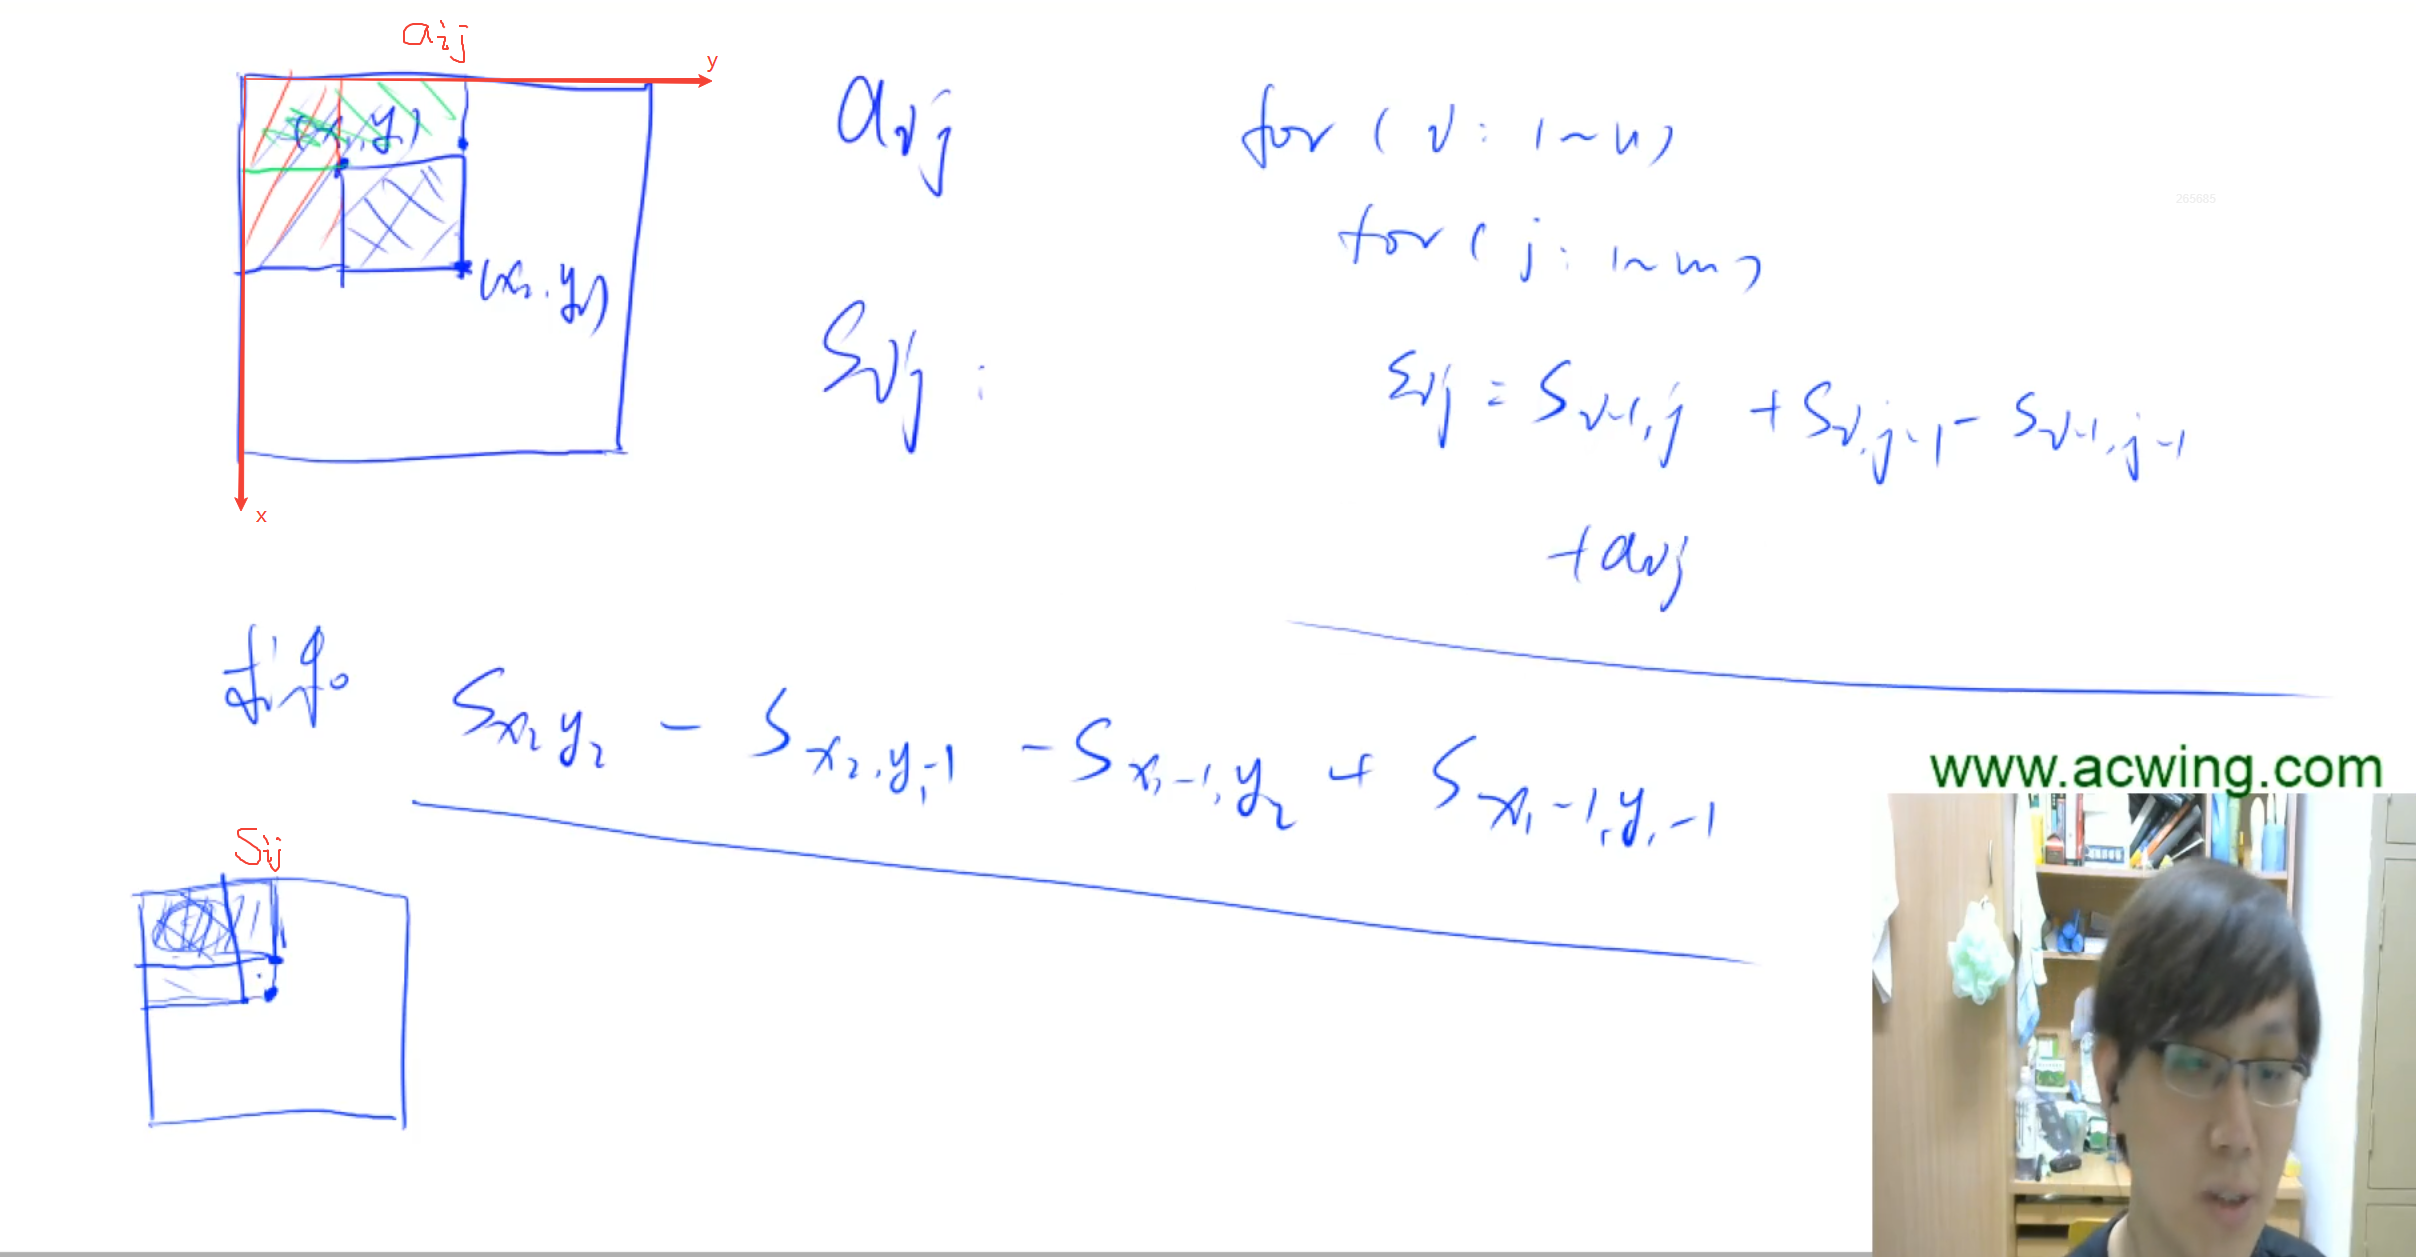 aij
y
(x1, y1)
(x2, y2)
x
aij
Sij :
for ( i : 1 ~ n )
for ( j : 1 ~ m )
Sij = Si-1,j + Si,j-1 - Si-1,j-1
+ aij
265685
Sx2y2 - Sx2,y1-1 - Sx1-1,y2 + Sx1-1,y1-1
www.acwing.com
Sij